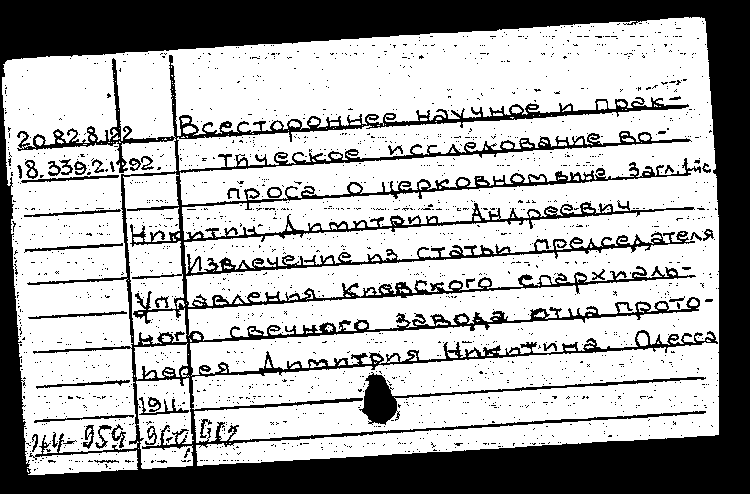 20.82.8.122 Всестороннее научное и прак-
18.339.2.1292. тическое исследование во-
проса о церковном вине. Загл. 1 йс.
Никитин, Димитрий Андреевич,
Извлечение из статьи председателя
Управления Киевского епархиаль-
ного свечного завода отца прото-
иерея Димитрия Никитина. Одесса
1911.